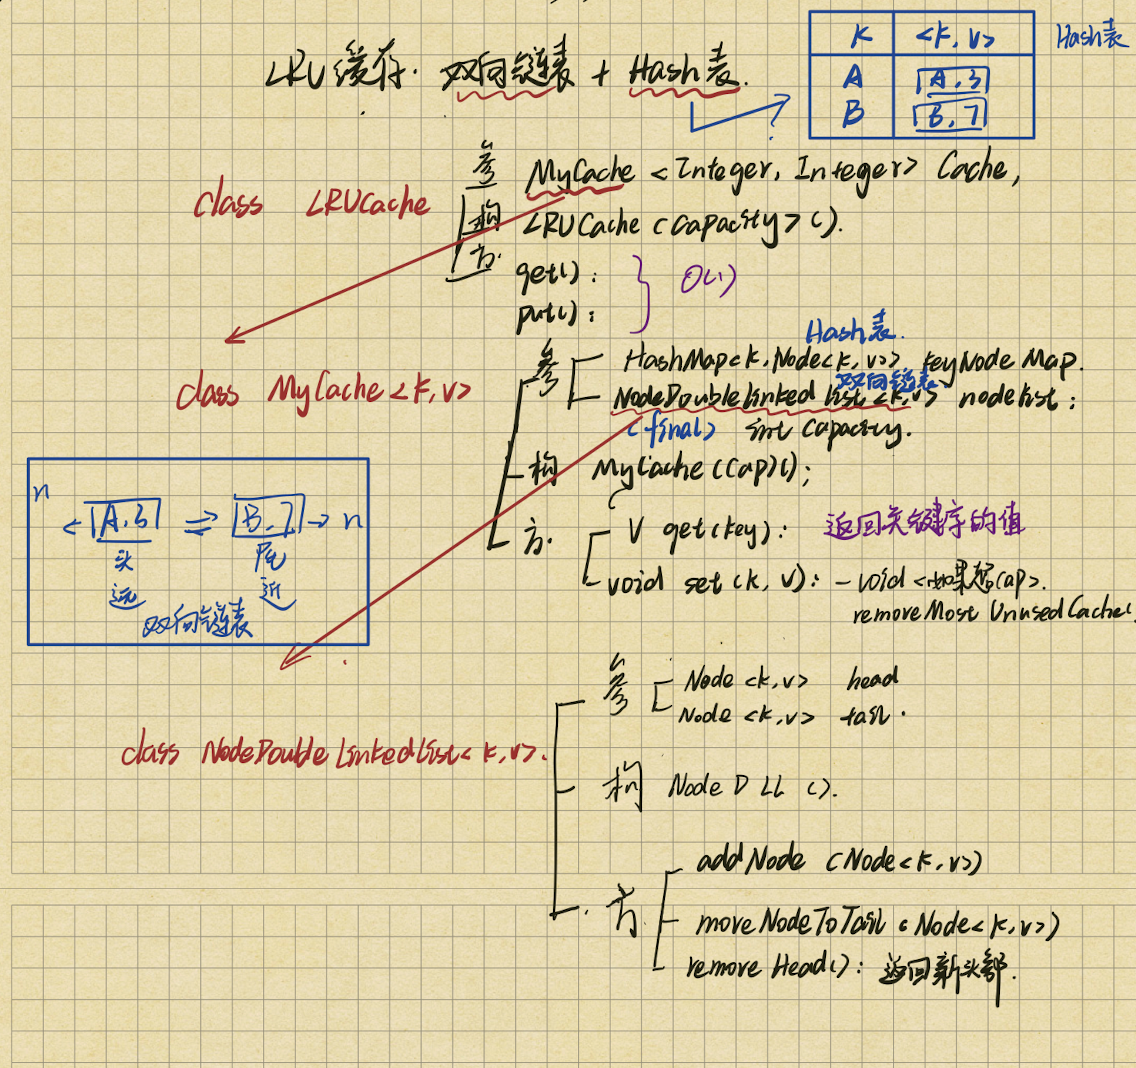 LRU缓存. 双向链表 + Hash表.
K <K,V> Hash表
A A.3
B B.7
class LRUCache
参 MyCache <Integer, Integer> Cache,
构 LRUCache (capacity> ().
方. get():
put(): } O(1)
Hash表.
class MyCache<K,V>
参 HashMap<K,Node<K,V>> keyNodeMap.
双向链表
NodeDoubleLinkedList<K,V> nodeList:
(final) int capacity.
构 MyCache(Cap)();
方. V get(key): 返回关键字的值
void set(K,V): - void <如果超Cap>.
removeMost UnusedCache(
n A.3 B.7 n
头 尾
远 近
双向链表
class NodeDoubleLinkedList<K,V>.
参 Node <K,V> head
Node <K,V> tail.
构 Node D LL ().
方. addNode (Node<K,V>)
moveNodeToTail (Node<K,V>)
remove Head(): 返回新头部.